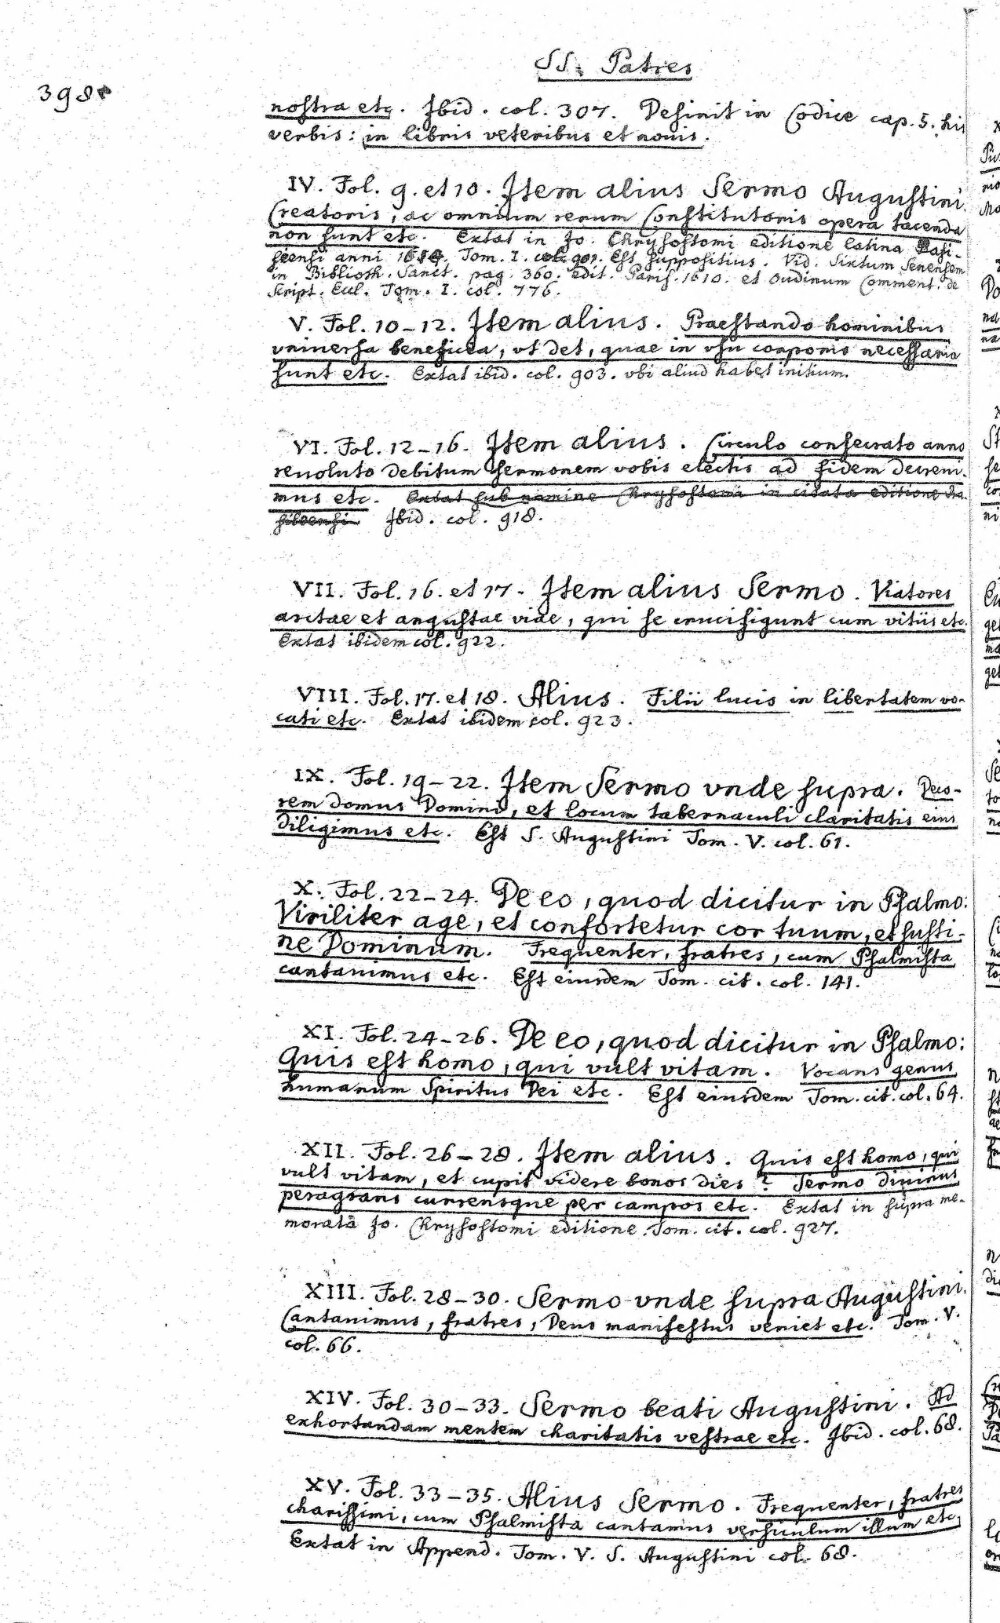 SS. Patres
398
nostra etc. Ibid. col. 307. Desinit in Codice cap. 5. his
verbis: in libris veteribus et nouis.
IV. Fol. 9. et 10. Item alius Sermo Augustini.
Creatoris, ac omnium rerum Constitutoris opera tacenda
non sunt etc. Extat in Jo. Chrysostomi editione latina Basi-
leensi anni Tom. I. col. 901. Est suppositius. Vid. Sixtum Senensem
in Biblioth. Sanct. pag. 360. edit. Paris. 1610. et Oudinum Comment. de
Script. Eccl. Tom. I. col. 776.
V. Fol. 10–12. Item alius. Praestando hominibus
vniuersa beneficia, vt det, quae in vsu corporis necessaria
sunt etc. Extat ibid. col. 903. vbi aliud habet initium.
VI. Fol. 12–16. Item alius. Circulo consecrato anno
reuoluto debitum Sermonem vobis electis ad fidem decreui-
mus etc. Extat sub nomine Chrysostomi in citata editione Ba-
sileensi Ibid. col. 918.
VII. Fol. 16. et 17. Item alius Sermo. Viatores
arctae et angustae viae, qui se crucifigunt cum vitiis etc.
Extat ibidem col. 922.
VIII. Fol. 17. et 18. Alius. Filii lucis in libertatem vo-
cati etc. Extat ibidem col. 923.
IX. Fol. 19–22. Item Sermo vnde supra. Deco-
rem domus Domini, et locum tabernaculi claritatis eius
diligimus etc. Est S. Augustini Tom. V. col. 61.
X. Fol. 22–24. De eo, quod dicitur in Psalmo:
Viriliter age, et confortetur cor tuum, et susti-
ne Dominum. Frequenter, fratres, cum Psalmista
cantauimus etc. Est eiusdem Tom. cit. col. 141.
XI. Fol. 24–26. De eo, quod dicitur in Psalmo:
Quis est homo, qui vult vitam. Vocans genus
humanum Spiritus Dei etc. Est eiusdem Tom. cit. col. 64.
XII. Fol. 26–28. Item alius. Quis est homo, qui
vult vitam, et cupit videre bonos dies? Sermo diuinus
peragrans currensque per campos etc. Extat in supra me-
morata Jo. Chrysostomi editione Tom. cit. col. 927.
XIII. Fol. 28–30. Sermo vnde supra Augustini.
Cantauimus, fratres, Deus manifestus veniet etc. Tom. V.
col. 66.
XIV. Fol. 30–33. Sermo beati Augustini. Ad
exhortandam mentem charitatis vestrae etc. Ibid. col. 68.
XV. Fol. 33–35. Alius Sermo. Frequenter, fratres
charissimi, cum Psalmista cantamus versiculum illum etc.
Extat in Append. Tom. V. S. Augustini col. 68.